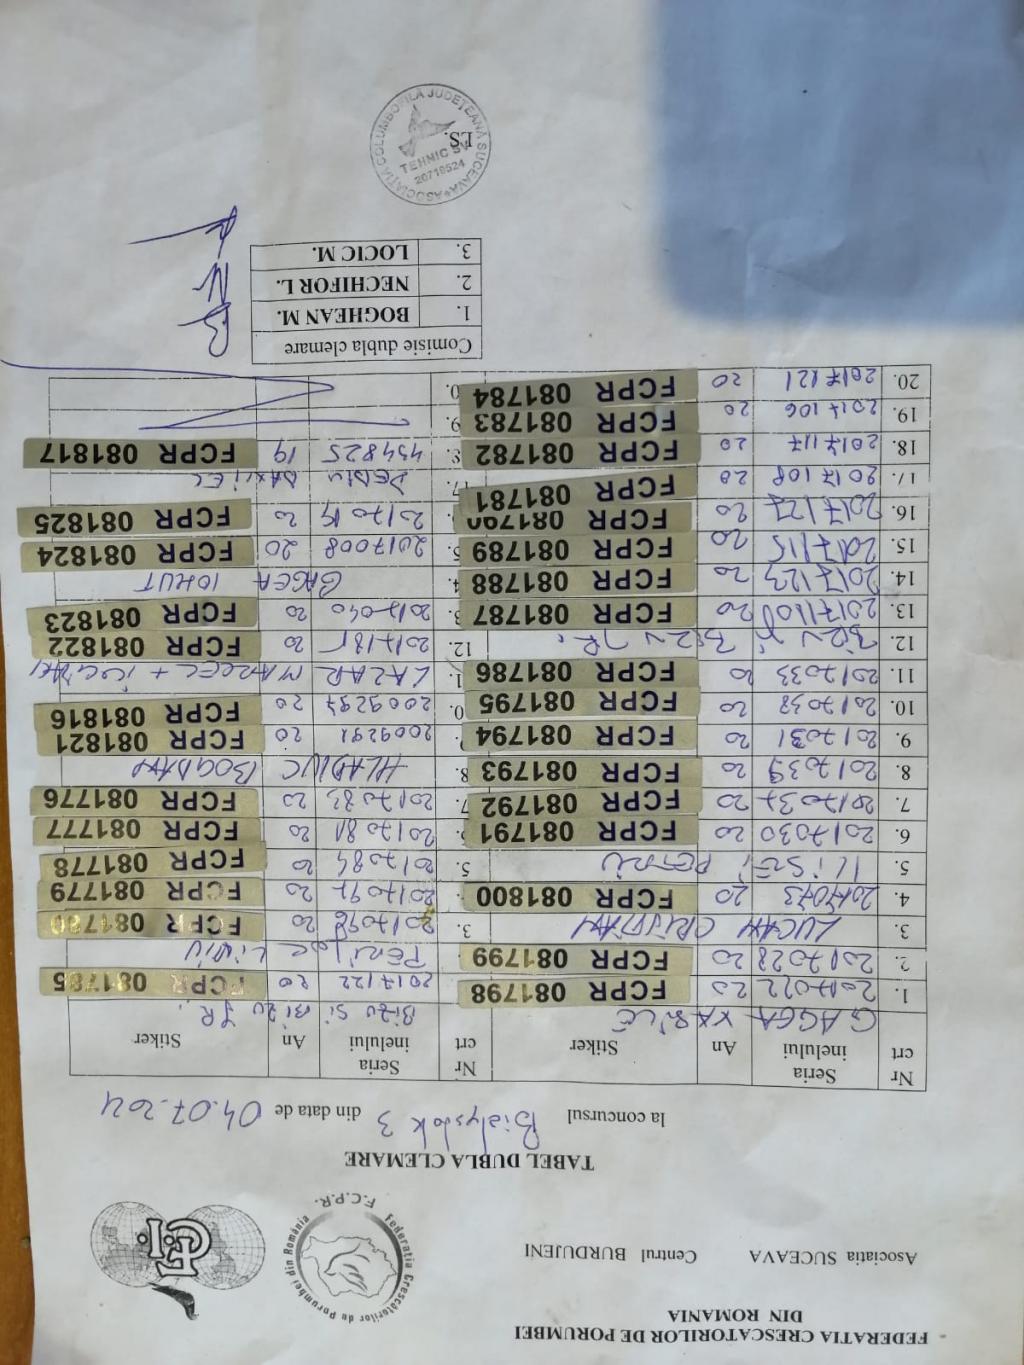 FEDERATIA CRESCATORILOR DE PORUMBEI
DIN ROMANIA
Asociatia SUCEAVA Centrul BURDUJENI
Federatia Crescătorilor de Porumbei din România
F.C.P.R.
TABEL DUBLA CLEMARE
la concursul Bialystok 3 din data de 04.07.2021
Nr crt Seria inelului An Stiker Nr crt Seria inelului An Stiker
GAGEA VASILE BIZU SI BIZU JR.
1. 2017022 20 FCPR 081798 2017122 20 FCPR 081785
2. 2017028 20 FCPR 081799 LIVIU
3. LUCAN CRISTIAN 3. 2017098 20 FCPR 081780
4. 2017073 20 FCPR 081800 20 FCPR 081779
5. PETRU 5. 2017084 20 FCPR 081778
6. 2017030 20 FCPR 081791 2017081 20 FCPR 081777
7. 2017037 20 FCPR 081792 7. 2017083 20 FCPR 081776
8. 2017039 20 FCPR 081793 8. HLADIUC BOGDAN
9. 2017031 20 FCPR 081794 2009291 20 FCPR 081821
10. 2017038 20 FCPR 081795 2009297 20 FCPR 081816
11. 2017033 20 FCPR 081786 LAZAR MARCEL + BOGDAN
12. BIZU SI BIZU JR. 12. 2017181 20 FCPR 081822
13. 2017110 20 FCPR 081787 20 FCPR 081823
14. 2017123 20 FCPR 081788 GAGEA IONUT
15. 2017115 20 FCPR 081789 2017008 20 FCPR 081824
16. 2017127 20 FCPR 081790 2017019 20 FCPR 081825
17. 2017108 20 FCPR 081781 17. DANIEL
18. 2017117 20 FCPR 081782 454825 19 FCPR 081817
19. 2017106 20 FCPR 081783
20. 2017121 20 FCPR 081784
Comisie dubla clemare
1. BOGHEAN M.
2. NECHIFOR L.
3. LOCIC M.
LS.
ASOCIAȚIA COLUMBOFILA JUDEȚEANA SUCEAVA
TEHNIC SV
20719524